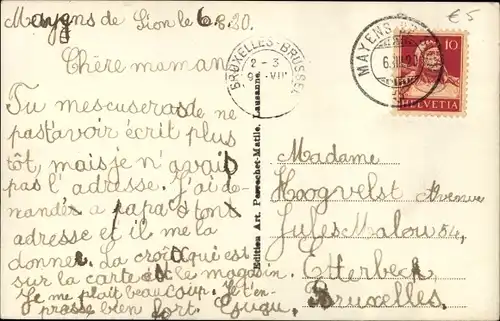 Mayens de Sion le 6.8.20.
€5
Chère maman
Tu mescuseras de ne
past'avoir écrit plus
tôt, mais je n'avait
pas l'adresse. J'ai de-
nandér a papa stont
adresse et il me la
donner. La croix qui est
sur la carte est le magasin.
Je me plait beaucoup. Je t'en-
prasse bien fort.
BRUXELLES-BRUSSEL
2-3
MAYENS
10
HELVETIA
Edition Art. Perrochet-Matile, Lausanne.
Madame
Hoogvelst Avenue
Jules Malou 54,
Etterbeck,
Bruxelles.